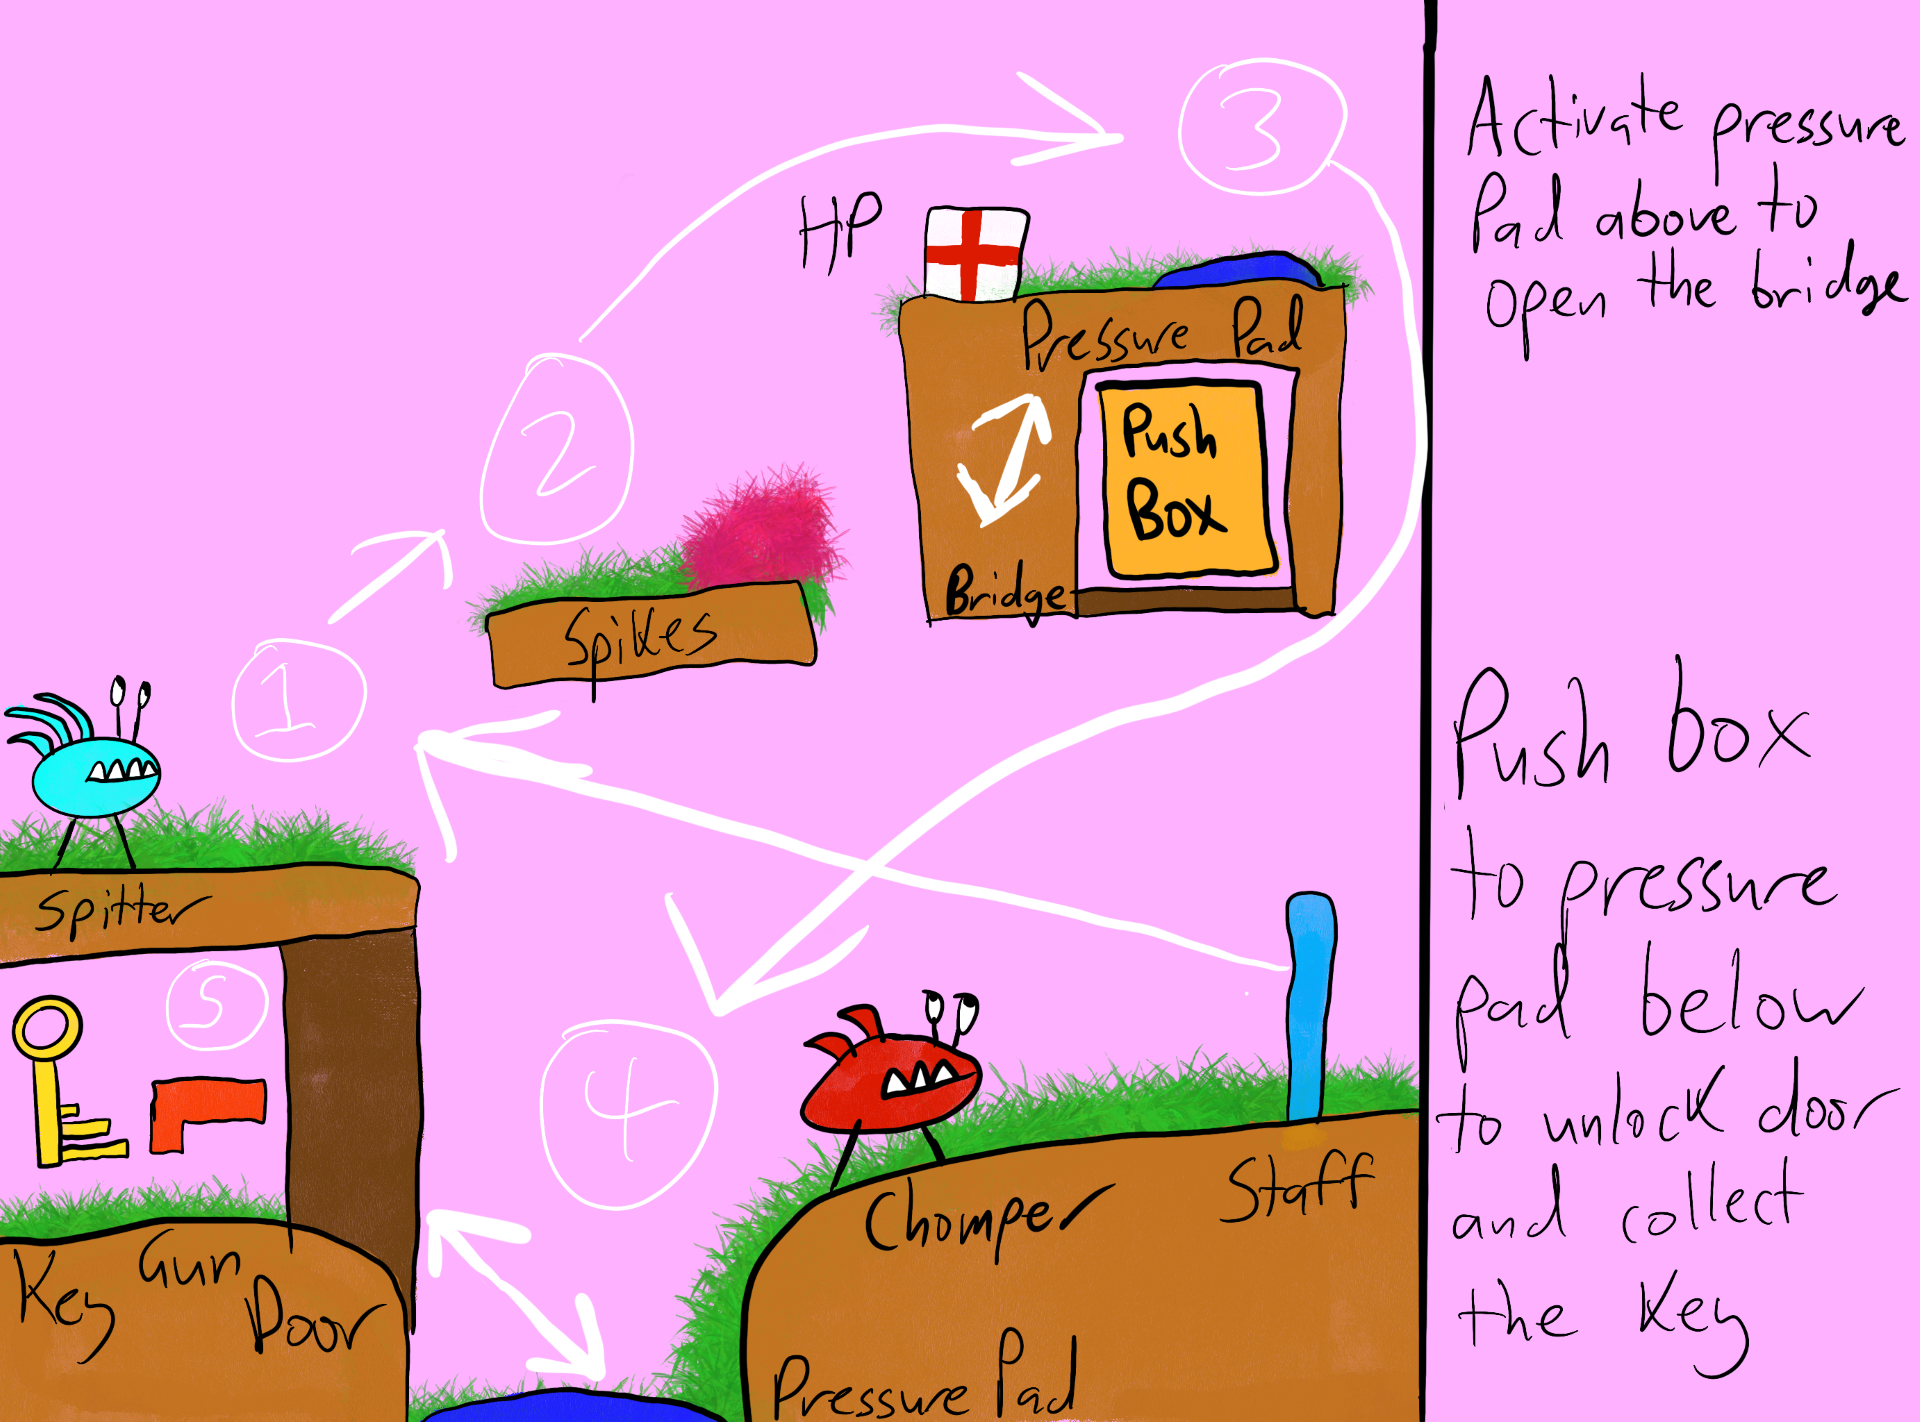 3
HP
Pressure Pad
Push
Box
2
Bridge
Spikes
1
Spitter
5
4
Chomper
Staff
Key Gun
Door
Pressure Pad
Activate pressure
Pad above to
open the bridge
Push box
to pressure
pad below
to unlock door
and collect
the Key